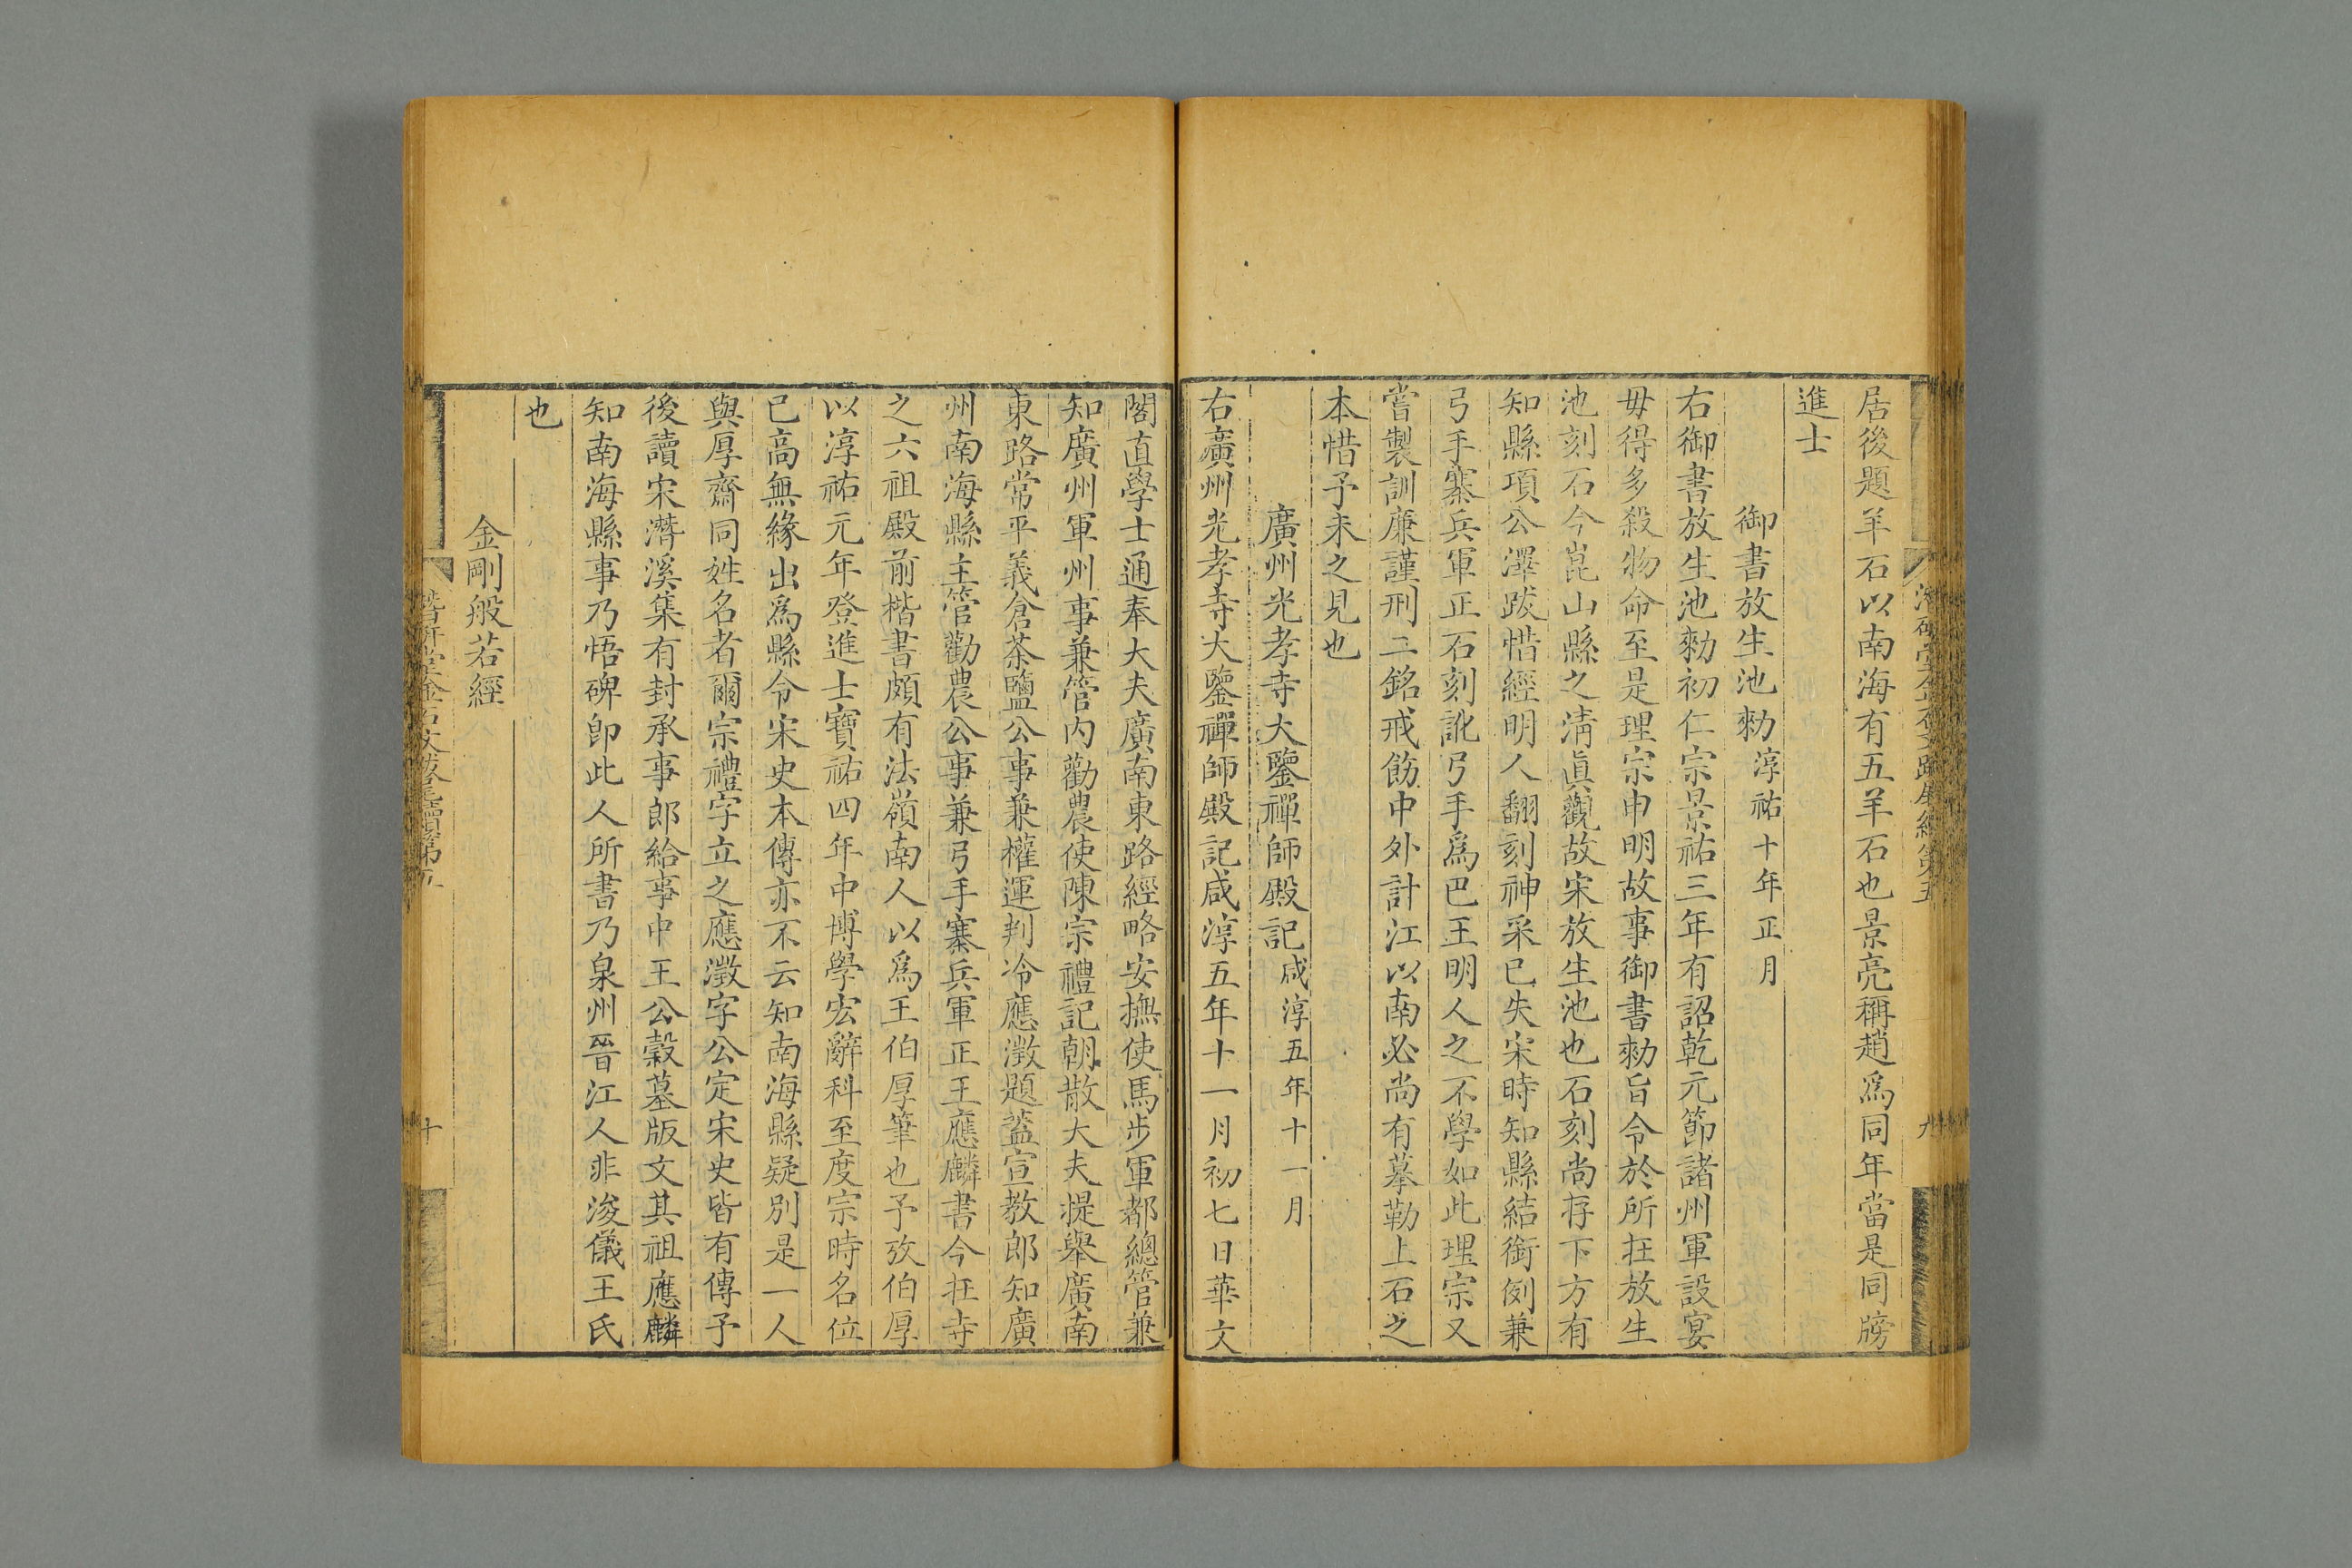 居後題羊石以南海有五羊石也景亮稱趙為同年當是同牓
進士
御書放生池勑淳祐十年正月
右御書放生池勑初仁宗景祐三年有詔乾元節諸州軍設宴
毋得多殺物命至是理宗申明故事御書勑旨令於所在放生
池刻石今崑山縣之清眞觀故宋放生池也石刻尚存下方有
知縣項公澤跋惜經明人翻刻神采已失宋時知縣結銜例兼
弓手寨兵軍正石刻訛弓手爲巴王明人之不學如此理宗又
嘗製訓廉謹刑二銘戒飭中外計江以南必尚有摹勒上石之
本惜予未之見也
廣州光孝寺大鑒禪師殿記咸淳五年十一月
右廣州光孝寺大鑒禪師殿記咸淳五年十一月初七日華文
閣直學士通奉大夫廣南東路經略安撫使馬步軍都總管兼
知廣州軍州事兼管内勸農使陳宗禮記朝散大夫提舉廣南
東路常平義倉茶鹽公事兼權運判冷應澂題蓋宣教郎知廣
州南海縣主管勸農公事兼弓手寨兵軍正王應麟書今在寺
之六祖殿前楷書頗有法嶺南人以爲王伯厚筆也予攷伯厚
以淳祐元年登進士寶祐四年中博學宏辭科至度宗時名位
已高無緣出爲縣令宋史本傳亦不云知南海縣疑別是一人
與厚齋同姓名者爾宗禮字立之應澂字公定宋史皆有傳予
後讀宋潛溪集有封承事郎給事中王公穀墓版文其祖應麟
知南海縣事乃悟碑卽此人所書乃泉州晉江人非浚儀王氏
也
金剛般若經
潛研堂金石文跋尾續第五
十